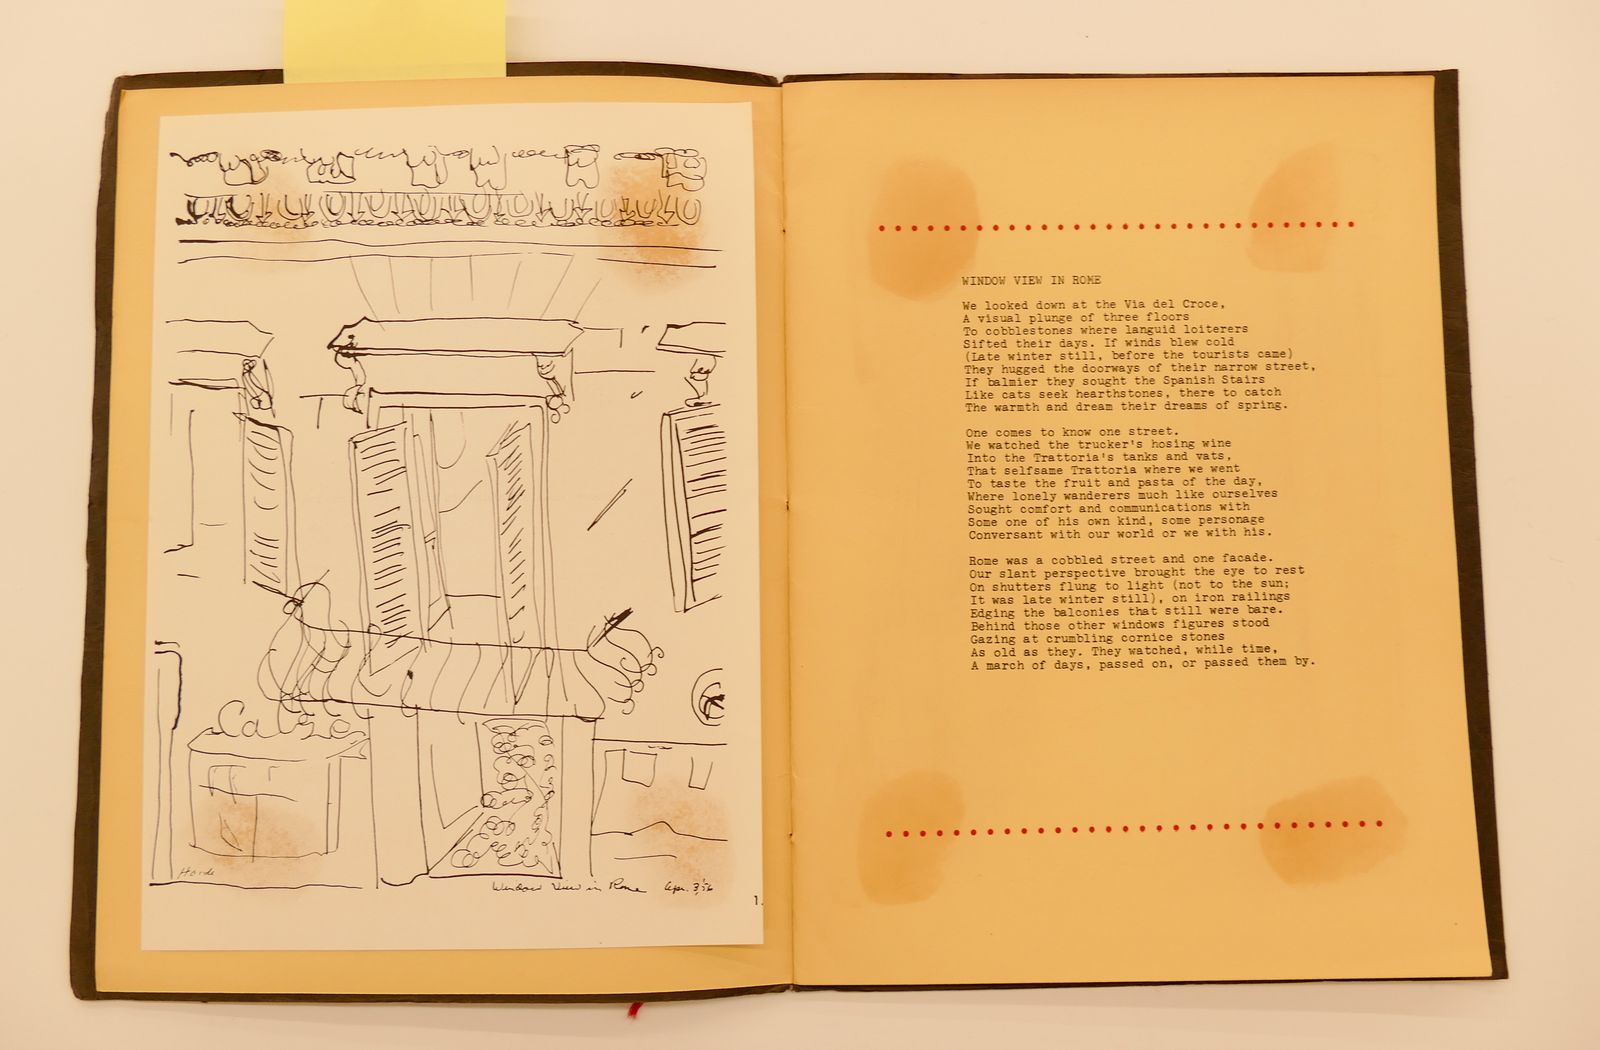 Window View in Rome Apr. 3, '56
1.
WINDOW VIEW IN ROME
We looked down at the Via del Croce,
A visual plunge of three floors
To cobblestones where languid loiterers
Sifted their days. If winds blew cold
(Late winter still, before the tourists came)
They hugged the doorways of their narrow street,
If balmier they sought the Spanish Stairs
Like cats seek hearthstones, there to catch
The warmth and dream their dreams of spring.
One comes to know one street.
We watched the trucker's hosing wine
Into the Trattoria's tanks and vats,
That selfsame Trattoria where we went
To taste the fruit and pasta of the day,
Where lonely wanderers much like ourselves
Sought comfort and communications with
Some one of his own kind, some personage
Conversant with our world or we with his.
Rome was a cobbled street and one facade.
Our slant perspective brought the eye to rest
On shutters flung to light (not to the sun;
It was late winter still), on iron railings
Edging the balconies that still were bare.
Behind those other windows figures stood
Gazing at crumbling cornice stones
As old as they. They watched, while time,
A march of days, passed on, or passed them by.